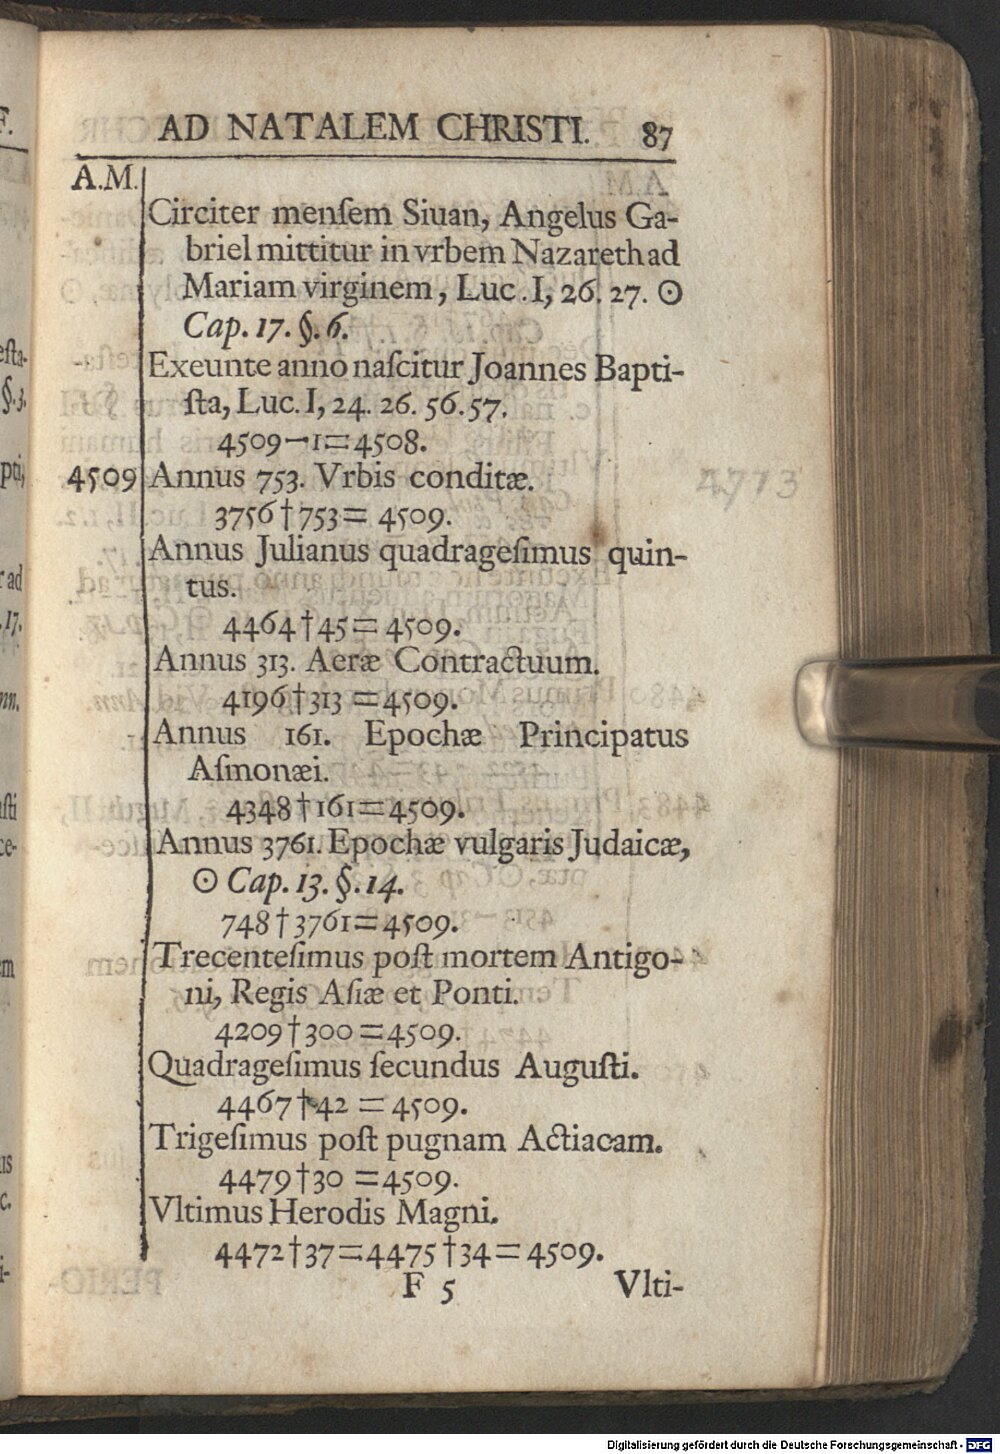 AD NATALEM CHRISTI. 87
A.M.
Circiter menſem Siuan, Angelus Ga-
briel mittitur in vrbem Nazareth ad
Mariam virginem, Luc. I, 26. 27. ⊙
Cap. 17. §. 6.
Exeunte anno naſcitur Joannes Bapti-
ſta, Luc. I, 24. 26. 56. 57.
4509—1=4508.
4509 Annus 753. Vrbis conditæ.
3756†753= 4509.
Annus Julianus quadrageſimus quin-
tus.
4464†45= 4509.
Annus 313. Aeræ Contractuum.
4196†313 =4509.
Annus 161. Epochæ Principatus
Aſmonæi.
4348†161=4509.
Annus 3761. Epochæ vulgaris Judaicæ,
⊙ Cap. 13. §. 14.
748†3761=4509.
Trecenteſimus poſt mortem Antigo-
ni, Regis Aſiæ et Ponti.
4209†300 =4509.
Quadrageſimus ſecundus Auguſti.
4467†42 = 4509.
Trigeſimus poſt pugnam Actiacam.
4479†30 =4509.
Vltimus Herodis Magni.
4472†37=4475†34=4509.
F 5 Vlti-
4713
Digitalisierung gefördert durch die Deutsche Forschungsgemeinschaft - DFG